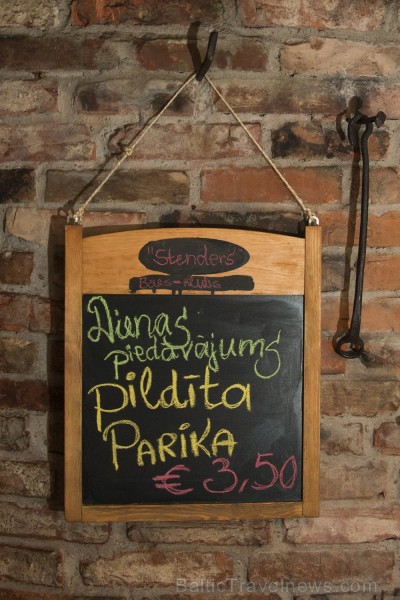 "Stenders"
Bārs-klubs
Dienas
piedāvājums
pildīta
PARIKA
€ 3,50
BalticTravelnews.com